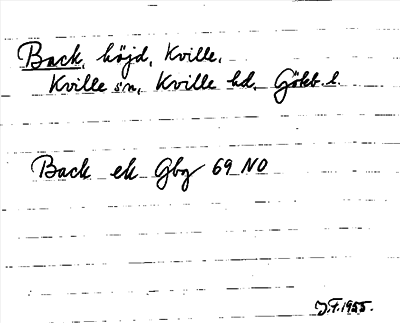 Back, höjd, Kville,
Kville sn, Kville hd, Götkb. l.
Back ek Gbg 69 NO
J.F. 1955.